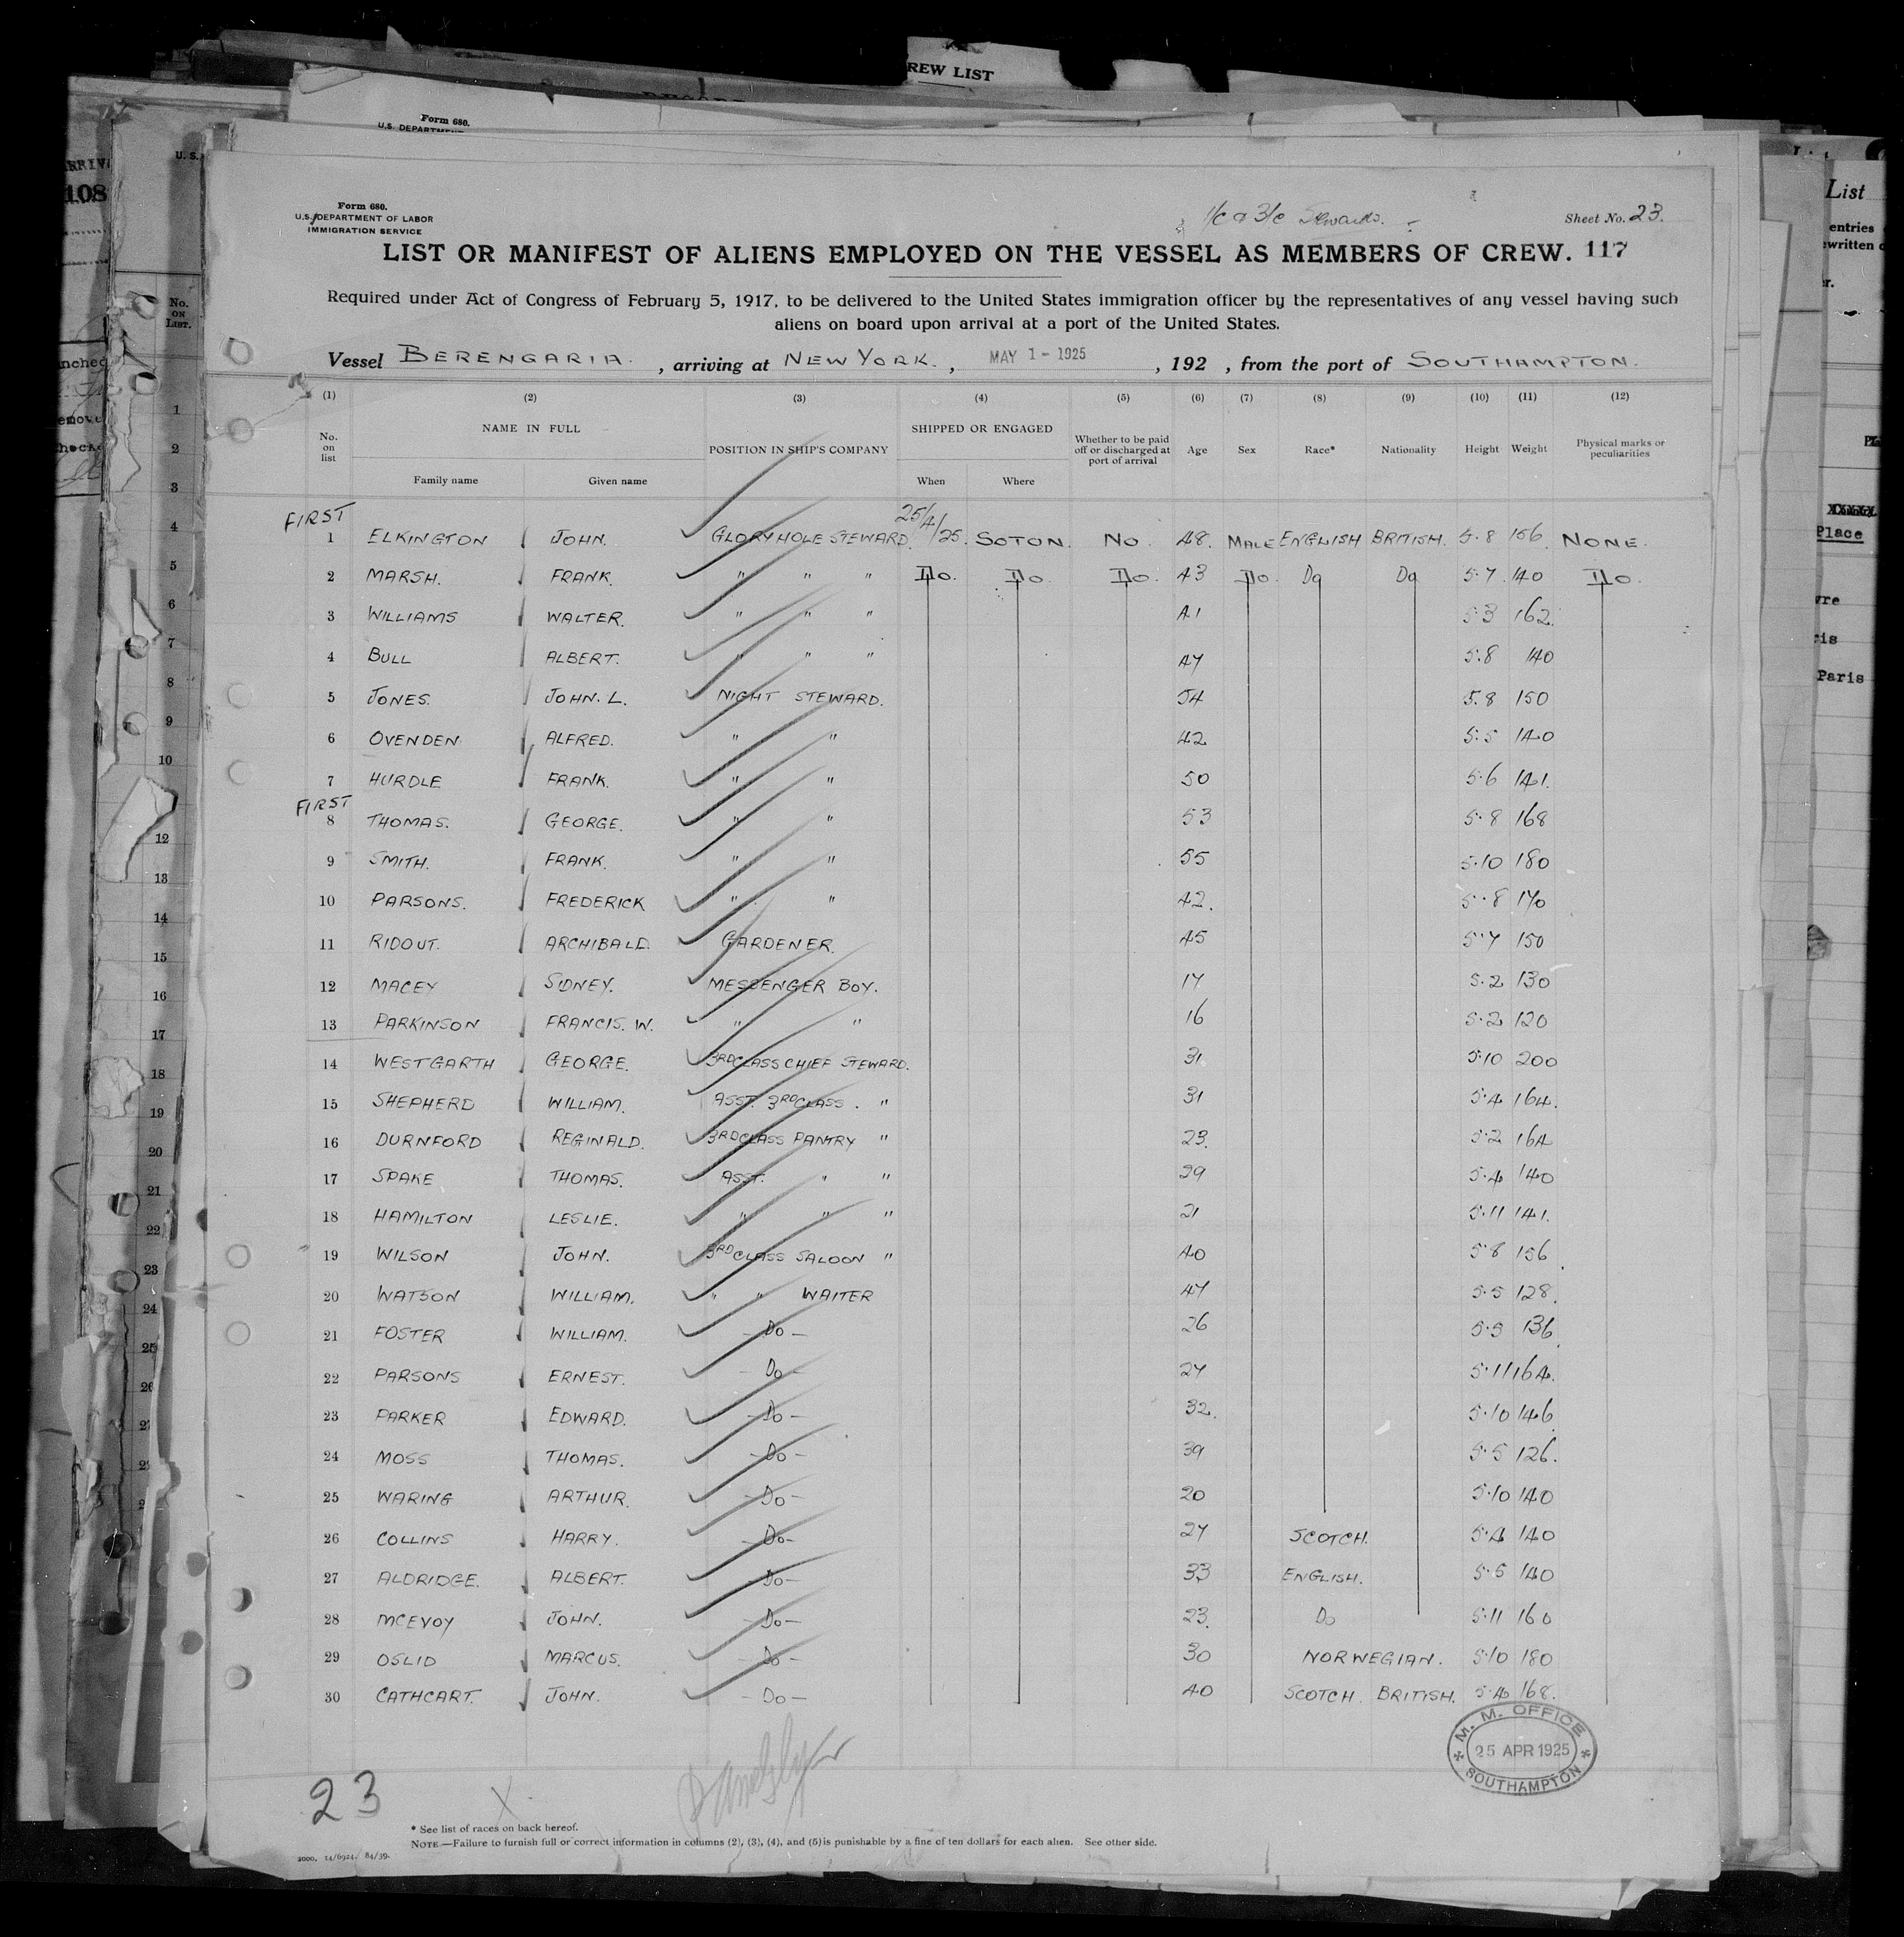 REW LIST
Form 680.
U.S. DEPARTMENT
108
U. S.
No.
ON
LIST.
List
entries
Place
Paris
Form 680.
U.S. DEPARTMENT OF LABOR
IMMIGRATION SERVICE
1/c & 3/c Stewards.
Sheet No. 23.
LIST OR MANIFEST OF ALIENS EMPLOYED ON THE VESSEL AS MEMBERS OF CREW. 117
Required under Act of Congress of February 5, 1917, to be delivered to the United States immigration officer by the representatives of any vessel having such
aliens on board upon arrival at a port of the United States.
Vessel BERENGARIA. , arriving at NEW YORK. , MAY 1 - 1925 , 192 , from the port of SOUTHAMPTON.
(1) (2) (3) (4) (5) (6) (7) (8) (9) (10) (11) (12)
No. on list NAME IN FULL POSITION IN SHIP'S COMPANY SHIPPED OR ENGAGED Whether to be paid off or discharged at port of arrival Age Sex Race* Nationality Height Weight Physical marks or peculiarities
Family name Given name When Where
FIRST
1 ELKINGTON JOHN. GLORY HOLE STEWARD. 25/4/25. SOTON. NO. 48. MALE ENGLISH BRITISH. 5.8 156 NONE.
2 MARSH. FRANK. " " " Do. Do. Do. 43 Do. Do Do 5.7. 140 Do.
3 WILLIAMS WALTER. " " " 41 5.3 162.
4 BULL ALBERT. " " " 47 5.8 140
5 JONES. JOHN. L. NIGHT STEWARD. 54 5.8 150
6 OVENDEN ALFRED. " " 42 5.5 140
7 HURDLE FRANK. " " 50 5.6 141.
FIRST
8 THOMAS. GEORGE. " " 53 5.8 168
9 SMITH. FRANK. " " 55 5.10 180
10 PARSONS. FREDERICK " " 42. 5.8 170
11 RIDOUT. ARCHIBALD. GARDENER. 45 5.7 150
12 MACEY SIDNEY. MESSENGER BOY. 17 5.2 130
13 PARKINSON FRANCIS. W. " " 16 5.2 120
14 WESTGARTH GEORGE. 3RD CLASS CHIEF STEWARD. 31 5.10 200
15 SHEPHERD WILLIAM. ASST. 3RD CLASS. " 31 5.4 164.
16 DURNFORD REGINALD. 3RD CLASS PANTRY " 23. 5.2 164
17 SPAKE THOMAS. ASST. " " 29 5.4 140
18 HAMILTON LESLIE. " " " 21 5.11 141.
19 WILSON JOHN. 3RD CLASS SALOON " 40 5.8 156
20 WATSON WILLIAM. " " WAITER 47 5.5 128.
21 FOSTER WILLIAM. - Do - 26 5.5 136
22 PARSONS ERNEST. - Do - 27 5.11 164.
23 PARKER EDWARD. - Do - 32. 5.10 146
24 MOSS THOMAS. - Do - 39 5.5 126.
25 WARING ARTHUR. - Do - 20 5.10 140
26 COLLINS HARRY. - Do - 27 SCOTCH. 5.4 140
27 ALDRIDGE. ALBERT. - Do - 33 ENGLISH. 5.5 140
28 MCEVOY JOHN. - Do - 23. Do 5.11 160
29 OSLID MARCUS. - Do - 30 NORWEGIAN. 5.10 180
30 CATHCART. JOHN. - Do - 40 SCOTCH. BRITISH. 5.4 168.
M. M. OFFICE
25 APR 1925
SOUTHAMPTON
23
X
* See list of races on back hereof.
NOTE.—Failure to furnish full or correct information in columns (2), (3), (4), and (5) is punishable by a fine of ten dollars for each alien. See other side.
2000. 14/6924. 84/39.